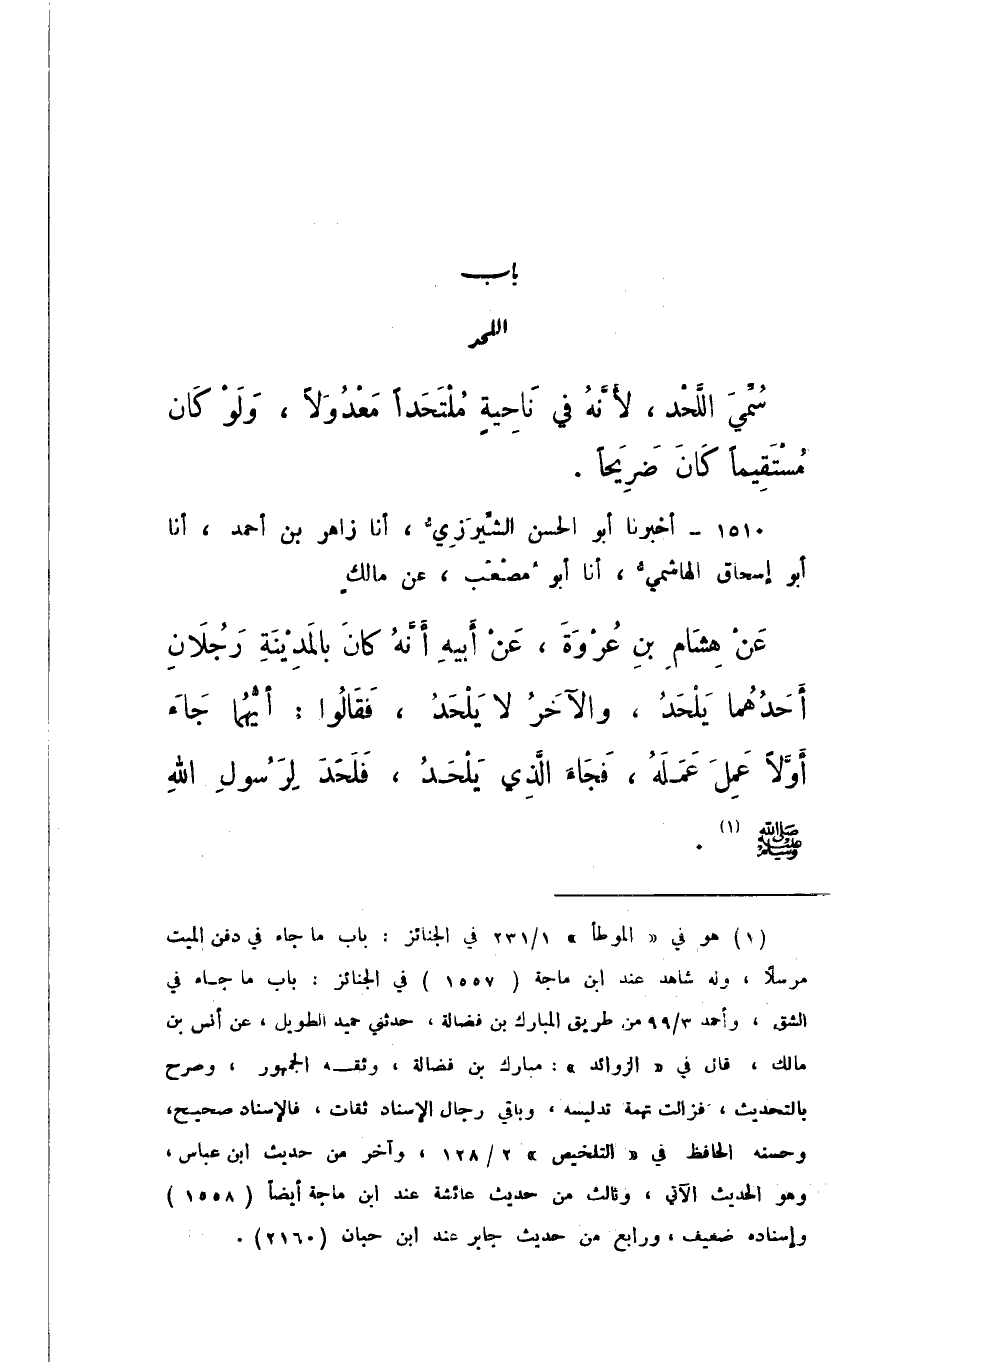 باب
اللحد
سُمِّيَ اللَّحْد ، لأَنَّهُ فِي نَاحِيةٍ مُلْتَحَداً مَعْدُولاً ، وَلَوْ كَان
مُسْتَقِيماً كَانَ ضَرِيحاً .
١٥١٠ – أخبرنا أبو الحسن الشِّيرَزِيُّ ، أنا زاهر بن أحمد ، أنا
أبو إسحاق الهاشميُّ ، أنا أبو مُصْعَب ، عن مالكٍ
عَنْ هِشَامِ بنِ عُرْوَةَ ، عَنْ أَبيهِ أَنَّهُ كانَ بالمَدِيْنَةِ رَجُلَانِ
أَحَدُهُما يَلْحَدُ ، والآخَرُ لا يَلْحَدُ ، فَقَالُوا : أَيُّهُما جَاءَ
أَوَّلاً عَمِلَ عَمَلَهُ ، فَجَاءَ الَّذِي يَلْحَدُ ، فَلَحَدَ لِرَسُولِ اللهِ
ﷺ (١) .
(١) هو في « الموطأ » ٢٣١/١ في الجنائز : باب ما جاء في دفن الميت
مرسلاً ، وله شاهد عند ابن ماجة ( ١٥٥٧ ) في الجنائز : باب ما جاء في
الشق ، وأحمد ٩٩/٣ من طريق المبارك بن فضالة ، حدثني حميد الطويل ، عن أنس بن
مالك ، قال في « الزوائد » : مبارك بن فضالة ، وثقه الجمهور ، وصرح
بالتحديث ، فزالت تهمة تدليسه ، وباقي رجال الإسناد ثقات ، فالإسناد صحيح،
وحسنه الحافظ في « التلخيص » ١٢٨/٢ ، وآخر من حديث ابن عباس ،
وهو الحديث الآتي ، وثالث من حديث عائشة عند ابن ماجة أيضاً ( ١٥٥٨ )
وإسناده ضعيف ، ورابع من حديث جابر عند ابن حبان (٢١٦٠) .